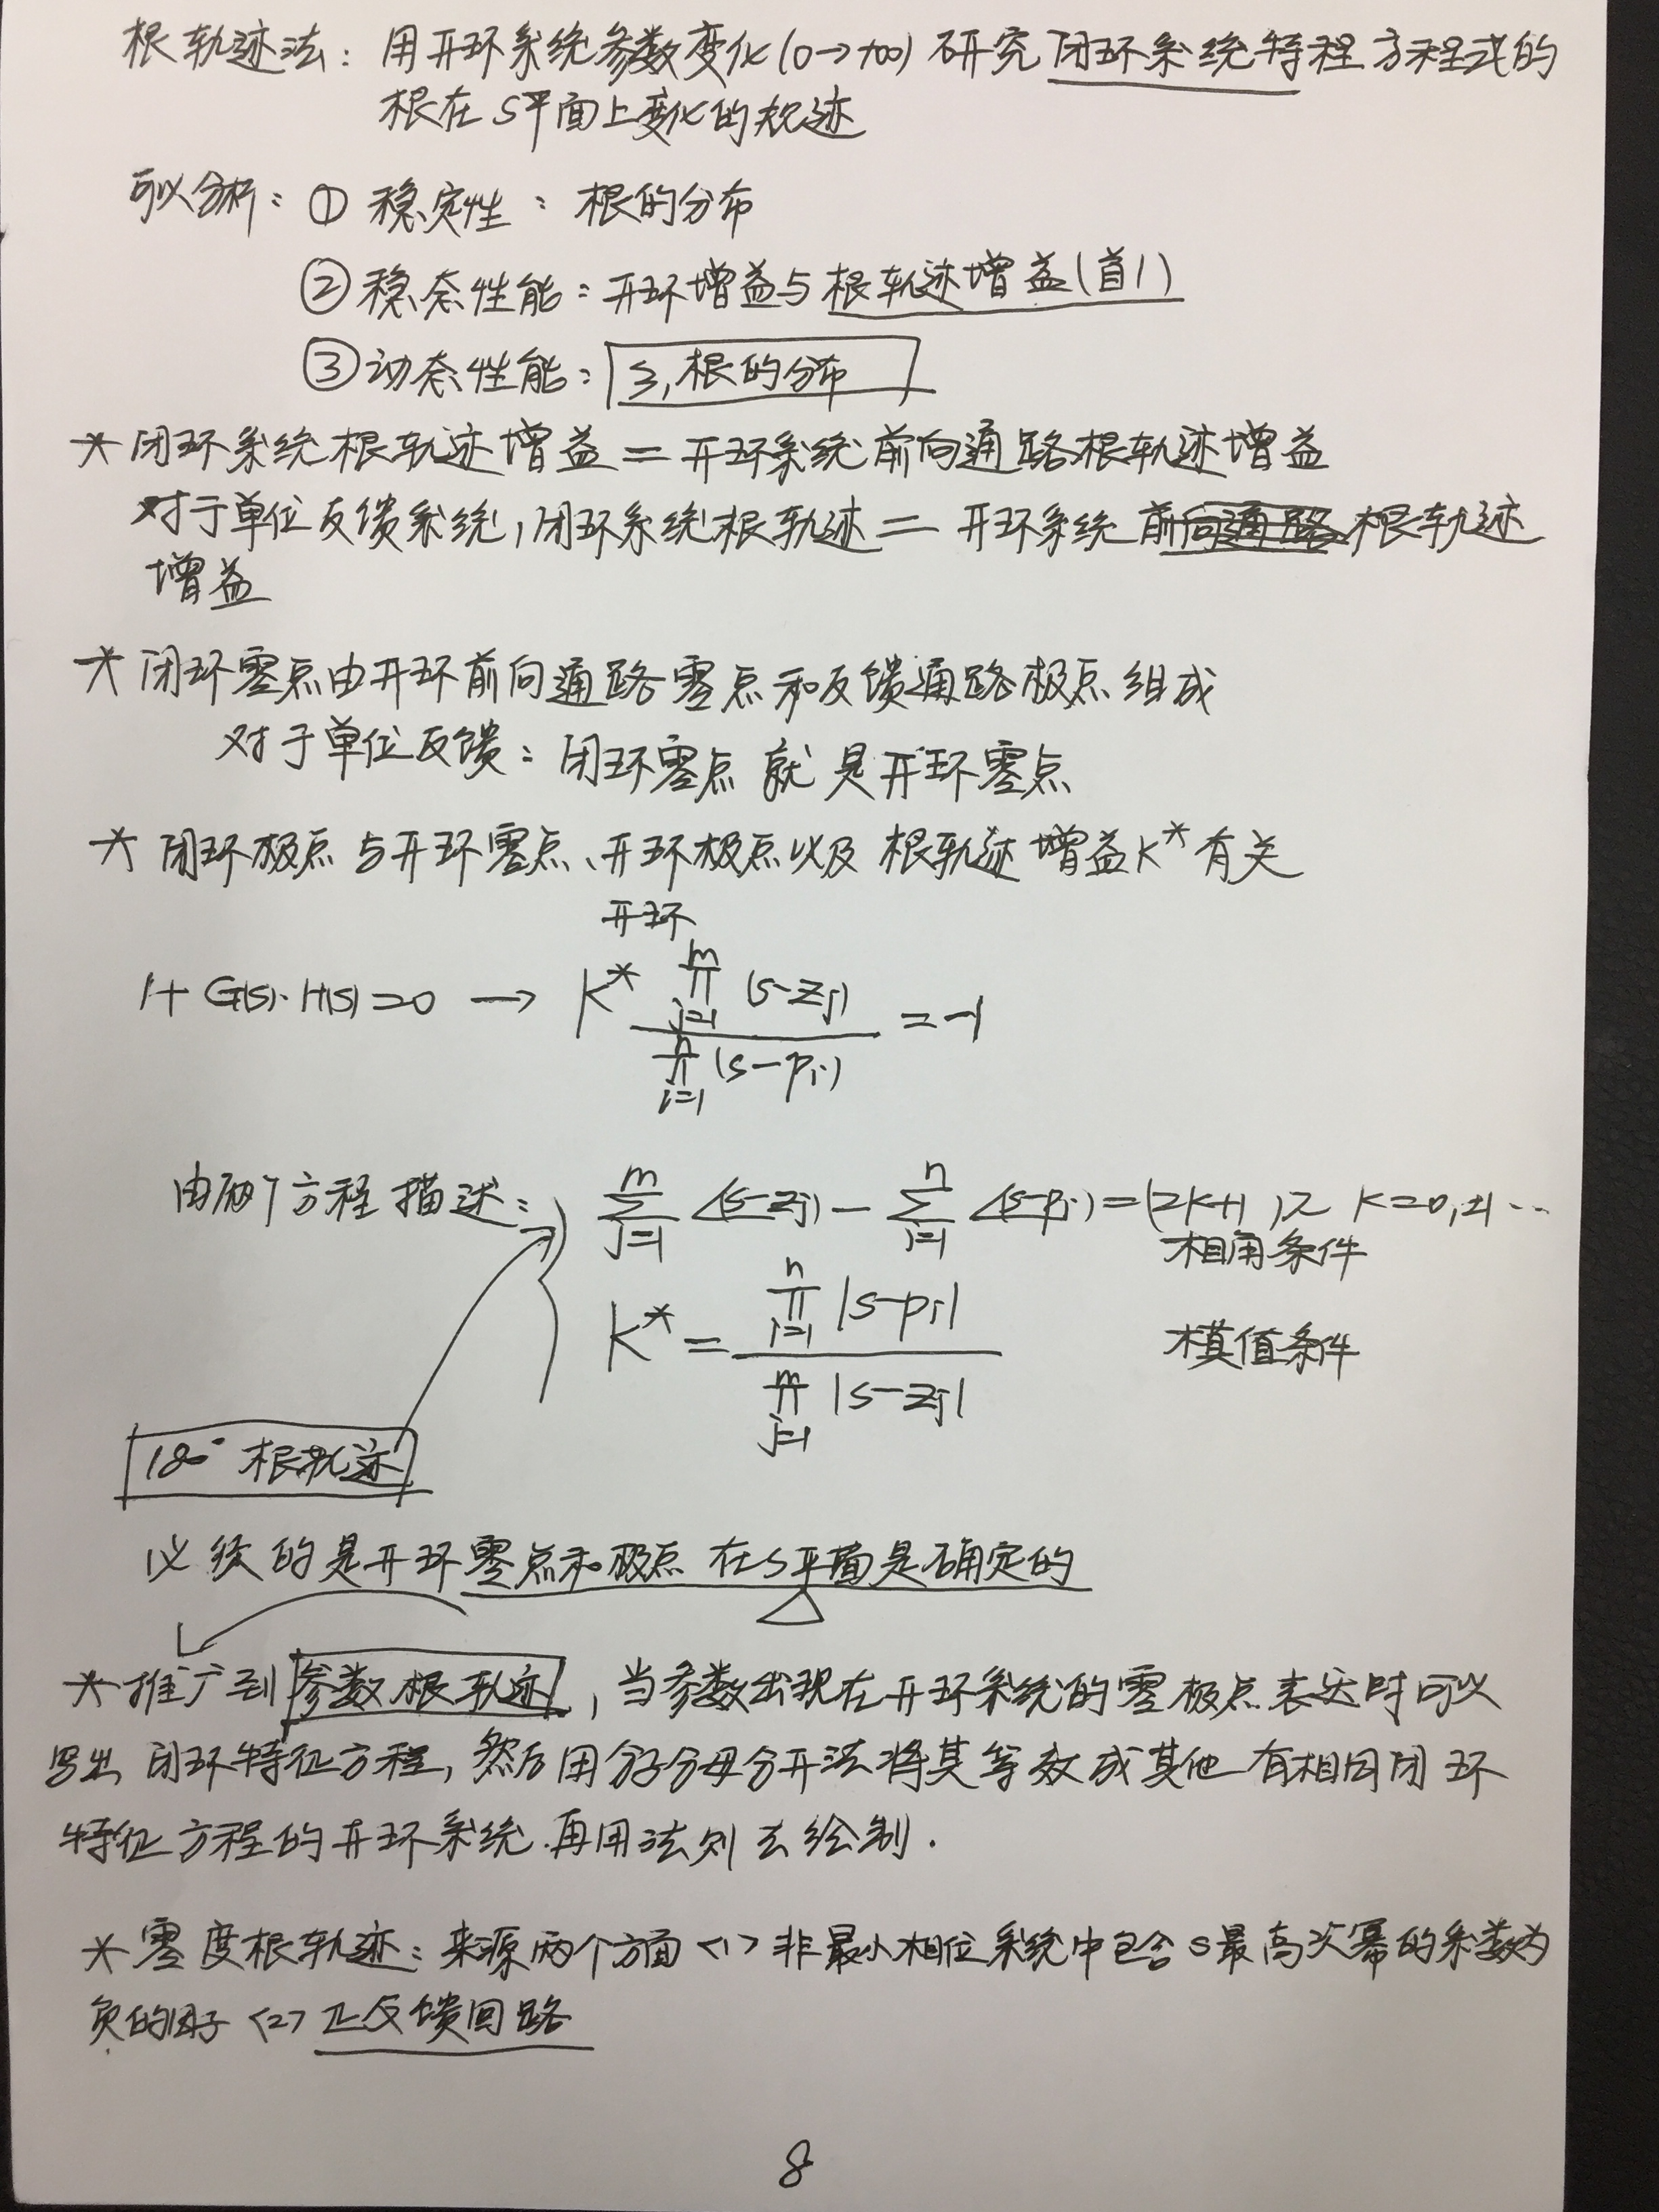 根轨迹法：用开环系统参数变化(0→+∞)研究闭环系统特程方程式的
根在S平面上变化的轨迹
可以分析：① 稳定性：根的分布
②稳态性能：开环增益与根轨迹增益(首1)
③动态性能：ξ,根的分布
* 闭环系统根轨迹增益＝开环系统前向通路根轨迹增益
对于单位反馈系统,闭环系统根轨迹＝开环系统 根轨迹
增益
* 闭环零点由开环前向通路零点和反馈通路极点组成
对于单位反馈：闭环零点就是开环零点
* 闭环极点与开环零点、开环极点以及根轨迹增益K*有关
开环
1+G(s)·H(s)=0 → K* ∏_{j=1}^{m}(s-zj) / ∏_{i=1}^{n}(s-pi) = -1
由两个方程描述：∑_{j=1}^{m}∠(s-zj) - ∑_{i=1}^{n}∠(s-pi) = (2k+1)π k=0,±1…
相角条件
K* = ∏_{i=1}^{n}|s-pi| / ∏_{j=1}^{m}|s-zj| 模值条件
180° 根轨迹
必须的是开环零点和极点在S平面是确定的
* 推广到参数根轨迹,当参数出现在开环系统的零极点表达时可以
写出闭环特征方程,然后用分子分母分开法将其等效成其他有相同闭环
特征方程的开环系统.再用法则去绘制.
* 零度根轨迹：来源两个方面<1>非最小相位系统中包含S最高次幂的系数为
负的因子<2>正反馈回路
8